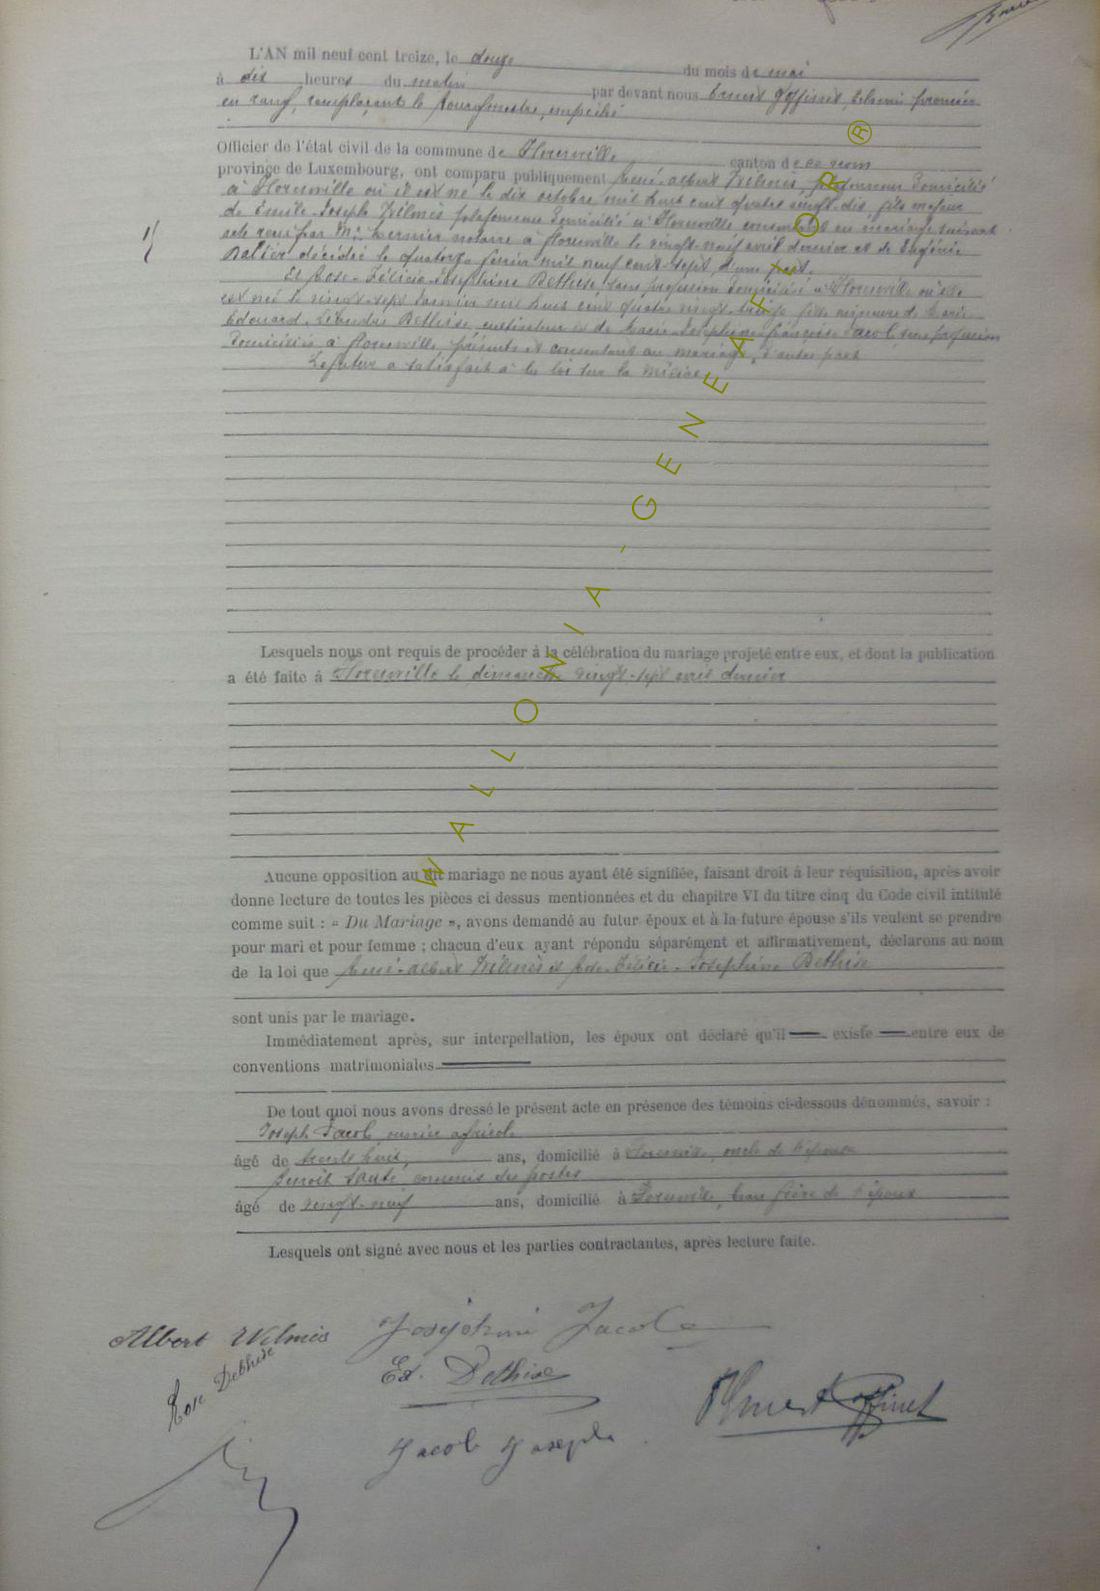 L'AN mil neuf cent treize, le douze du mois de mai
à dix heures du matin par devant nous Ernest Goffinet, Echevin premier
en rang, remplaçant le Bourgmestre, empêché
Officier de l'état civil de la commune de Florenville canton de ce nom
province de Luxembourg, ont comparu publiquement René-Albert Wilmès, domicilié
à Florenville où il est né le dix octobre mil huit cent quatre vingt-dix, fils majeur
de Emile Joseph Wilmès plafonneur domicilié à Florenville, consentant au mariage suivant
acte reçu par Mr. notaire à Florenville le vingt-neuf avril dernier et de Eugénie
décédée le quatorze février mil neuf cent-sept d'une part.
Et Rose-Félicie-Joséphine Dethise, sans profession domiciliée à Florenville où elle
est née le vingt-sept janvier mil huit cent quatre vingt- fille mineure de Marie
Edouard Dethise, cultivateur et de Marie Joséphine françoise Jacob sans profession
domiciliés à Florenville, présents et consentant au mariage, d'autre part
Le futur a satisfait à la loi sur la milice.
Lesquels nous ont requis de procéder à la célébration du mariage projeté entre eux, et dont la publication
a été faite à Florenville le dimanche vingt-sept avril dernier
Aucune opposition au dit mariage ne nous ayant été signifiée, faisant droit à leur réquisition, après avoir
donne lecture de toutes les pièces ci dessus mentionnées et du chapitre VI du titre cinq du Code civil intitulé
comme suit : « Du Mariage », avons demandé au futur époux et à la future épouse s'ils veulent se prendre
pour mari et pour femme ; chacun d'eux ayant répondu séparément et affirmativement, déclarons au nom
de la loi que René-Albert Wilmès et Rose-Félicie-Joséphine Dethise
sont unis par le mariage.
Immédiatement après, sur interpellation, les époux ont déclaré qu'il existe entre eux de
conventions matrimoniales
De tout quoi nous avons dressé le présent acte en présence des témoins ci-dessous dénommés, savoir :
Joseph Jacob ouvrier agricole
âgé de trente huit, ans, domicilié à Florenville, oncle de l'épouse
Benoît commis des postes
âgé de vingt-neuf ans, domicilié à Florenville, beau frère de l'époux
Lesquels ont signé avec nous et les parties contractantes, après lecture faite.
Albert Wilmès Joséphine Jacob
Rose Dethise
Ed. Dethise
Ernest Goffinet
Jacob Joseph
WALLONIA-GENEAFLOR®